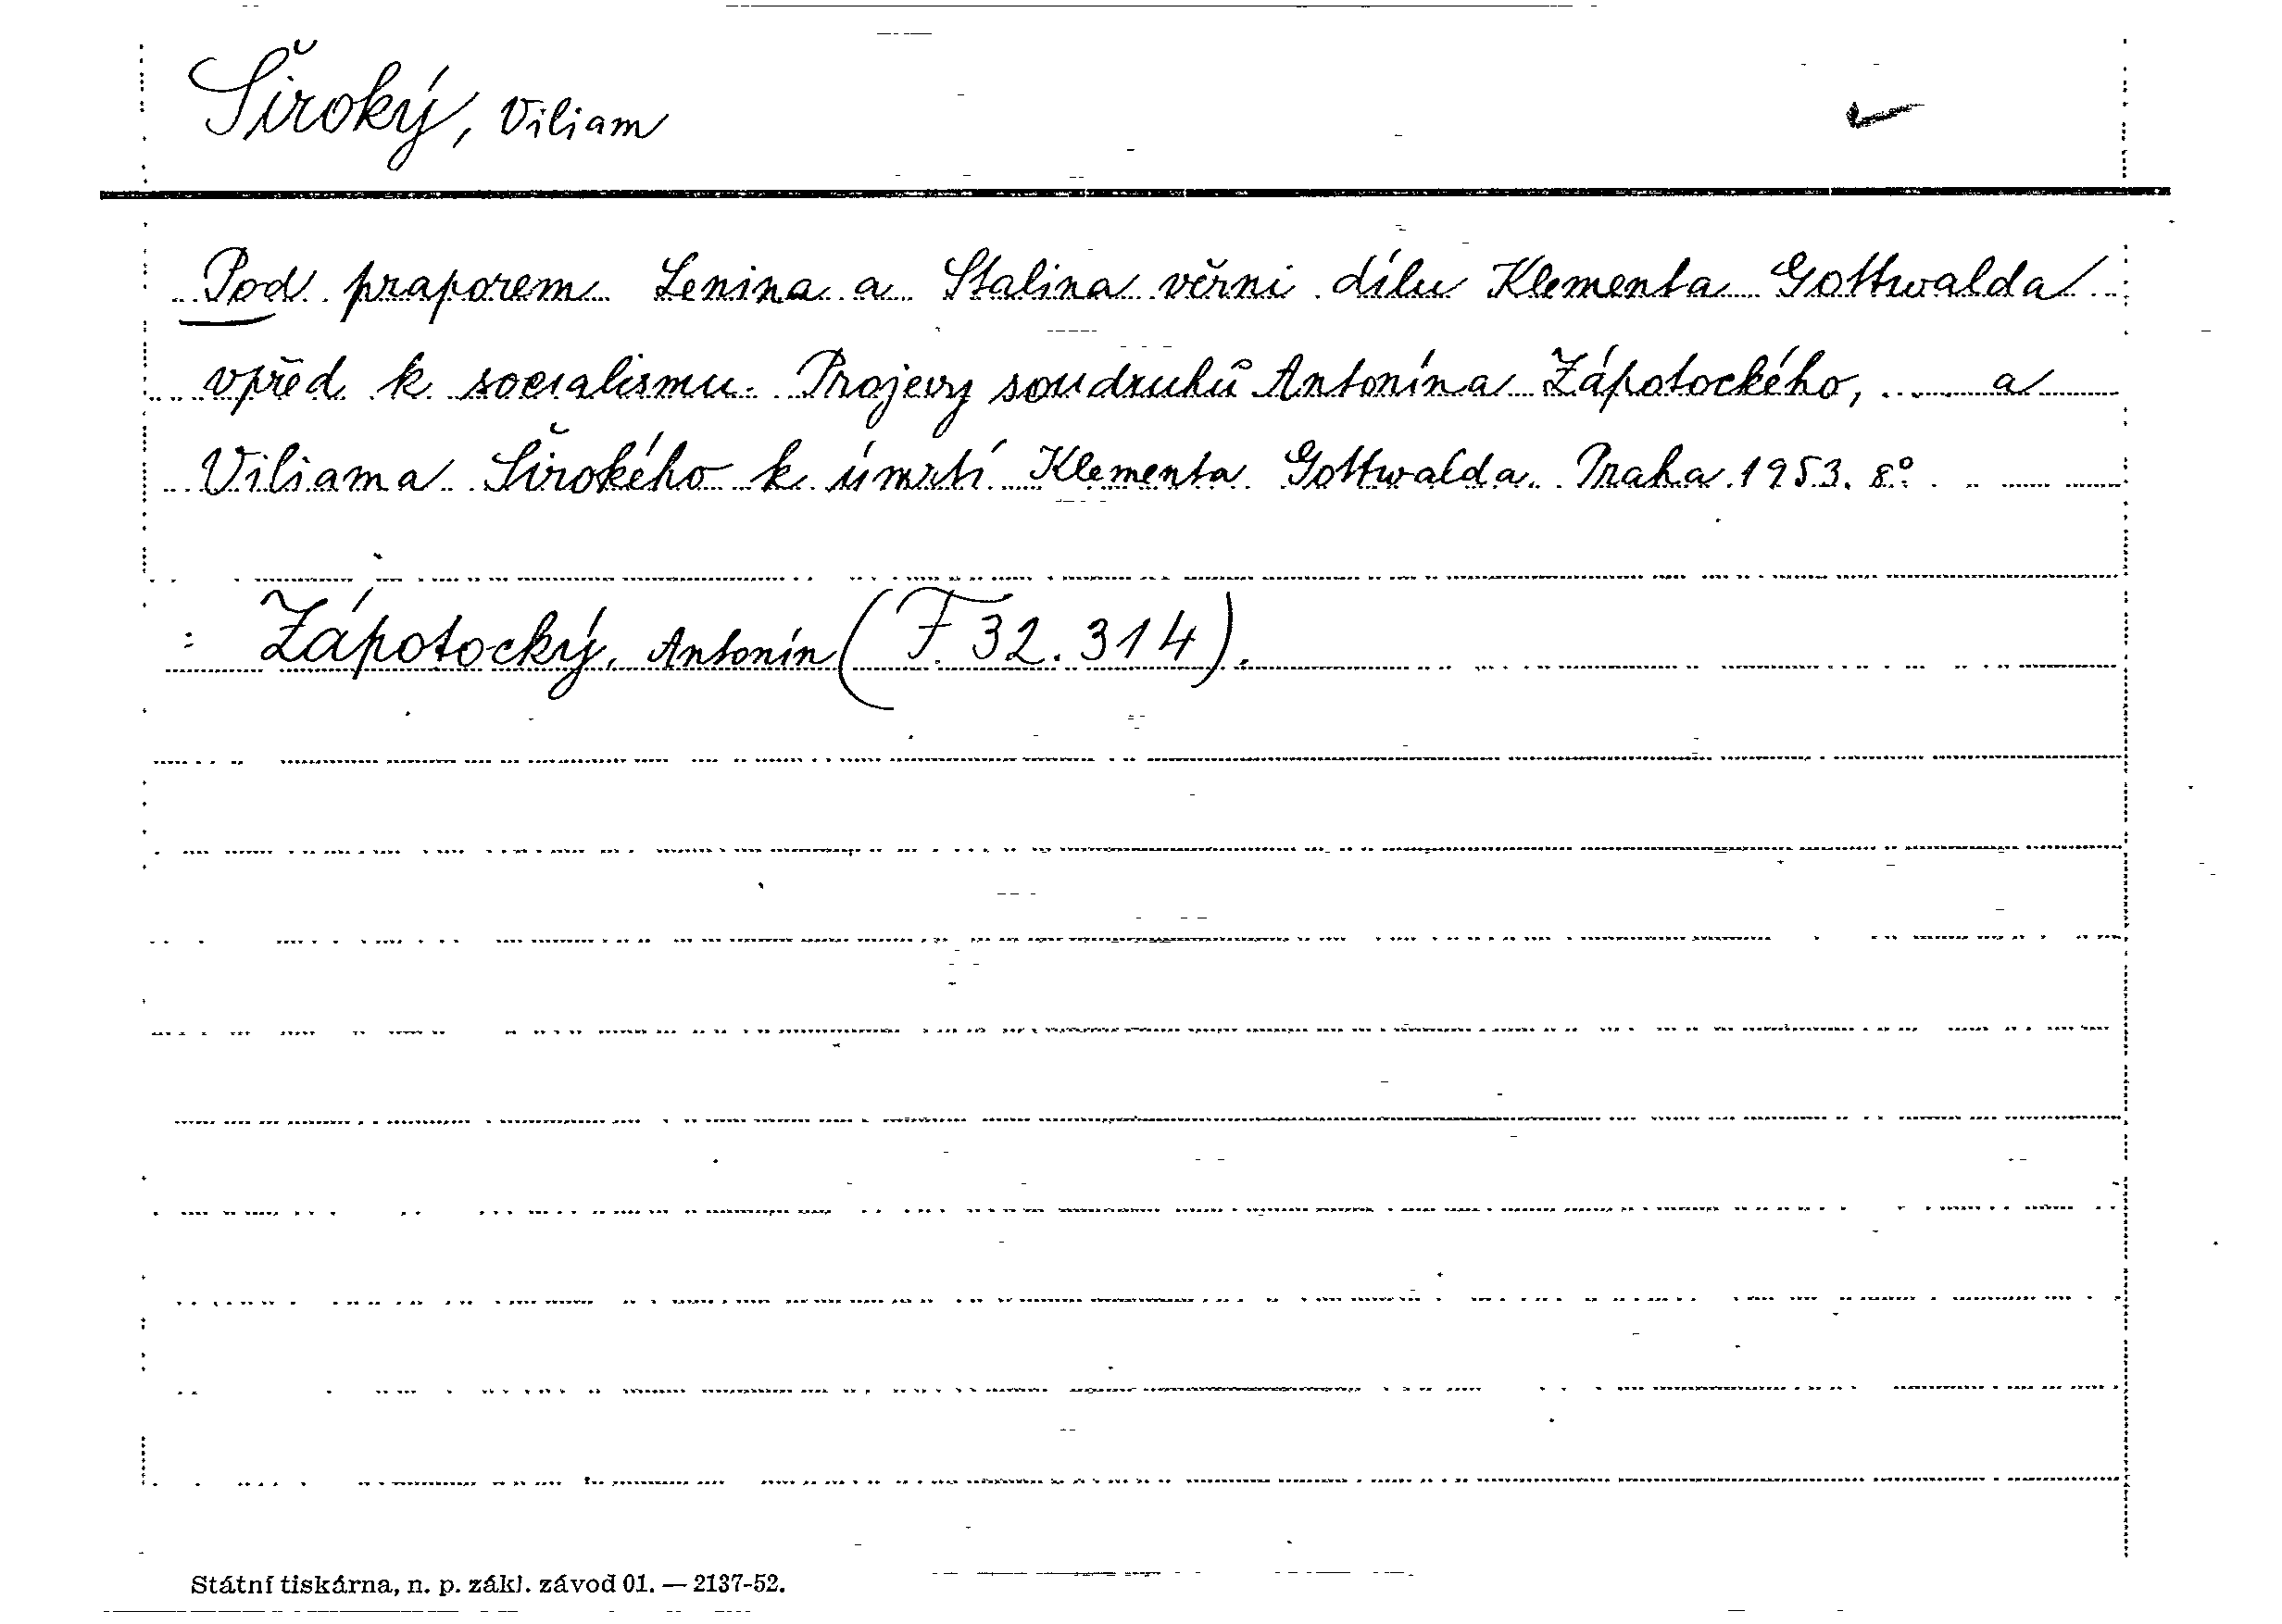 Široký, Viliam
Pod praporem Lenina a Stalina věrni dílu Klementa Gottwalda
vpřed k socialismu. Projevy soudruhů Antonína Zápotockého, ..... a
Viliama Širokého k úmrtí Klementa Gottwalda. Praha 1953. 8°.
: Zápotocký, Antonín (F 32.314).
Státní tiskárna, n. p. zákl. závod 01. — 2137-52.